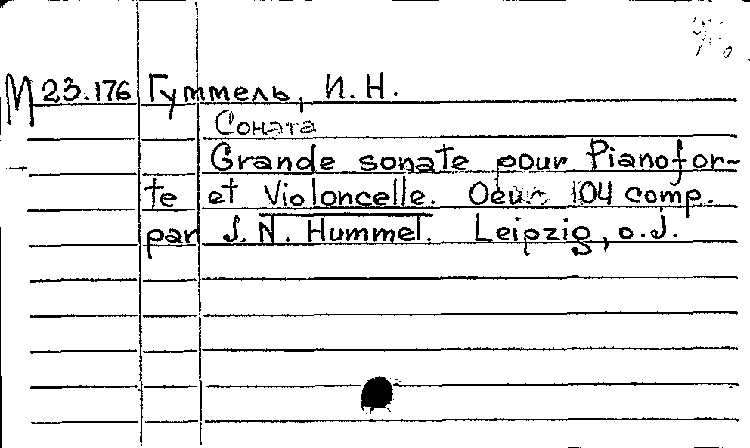 M 23.176 Гуммель, И. Н.
Соната
Grande sonate pour Pianofor-
te et Violoncelle. Oeuv 104 comp.
par J. N. Hummel. Leipzig, o. J.